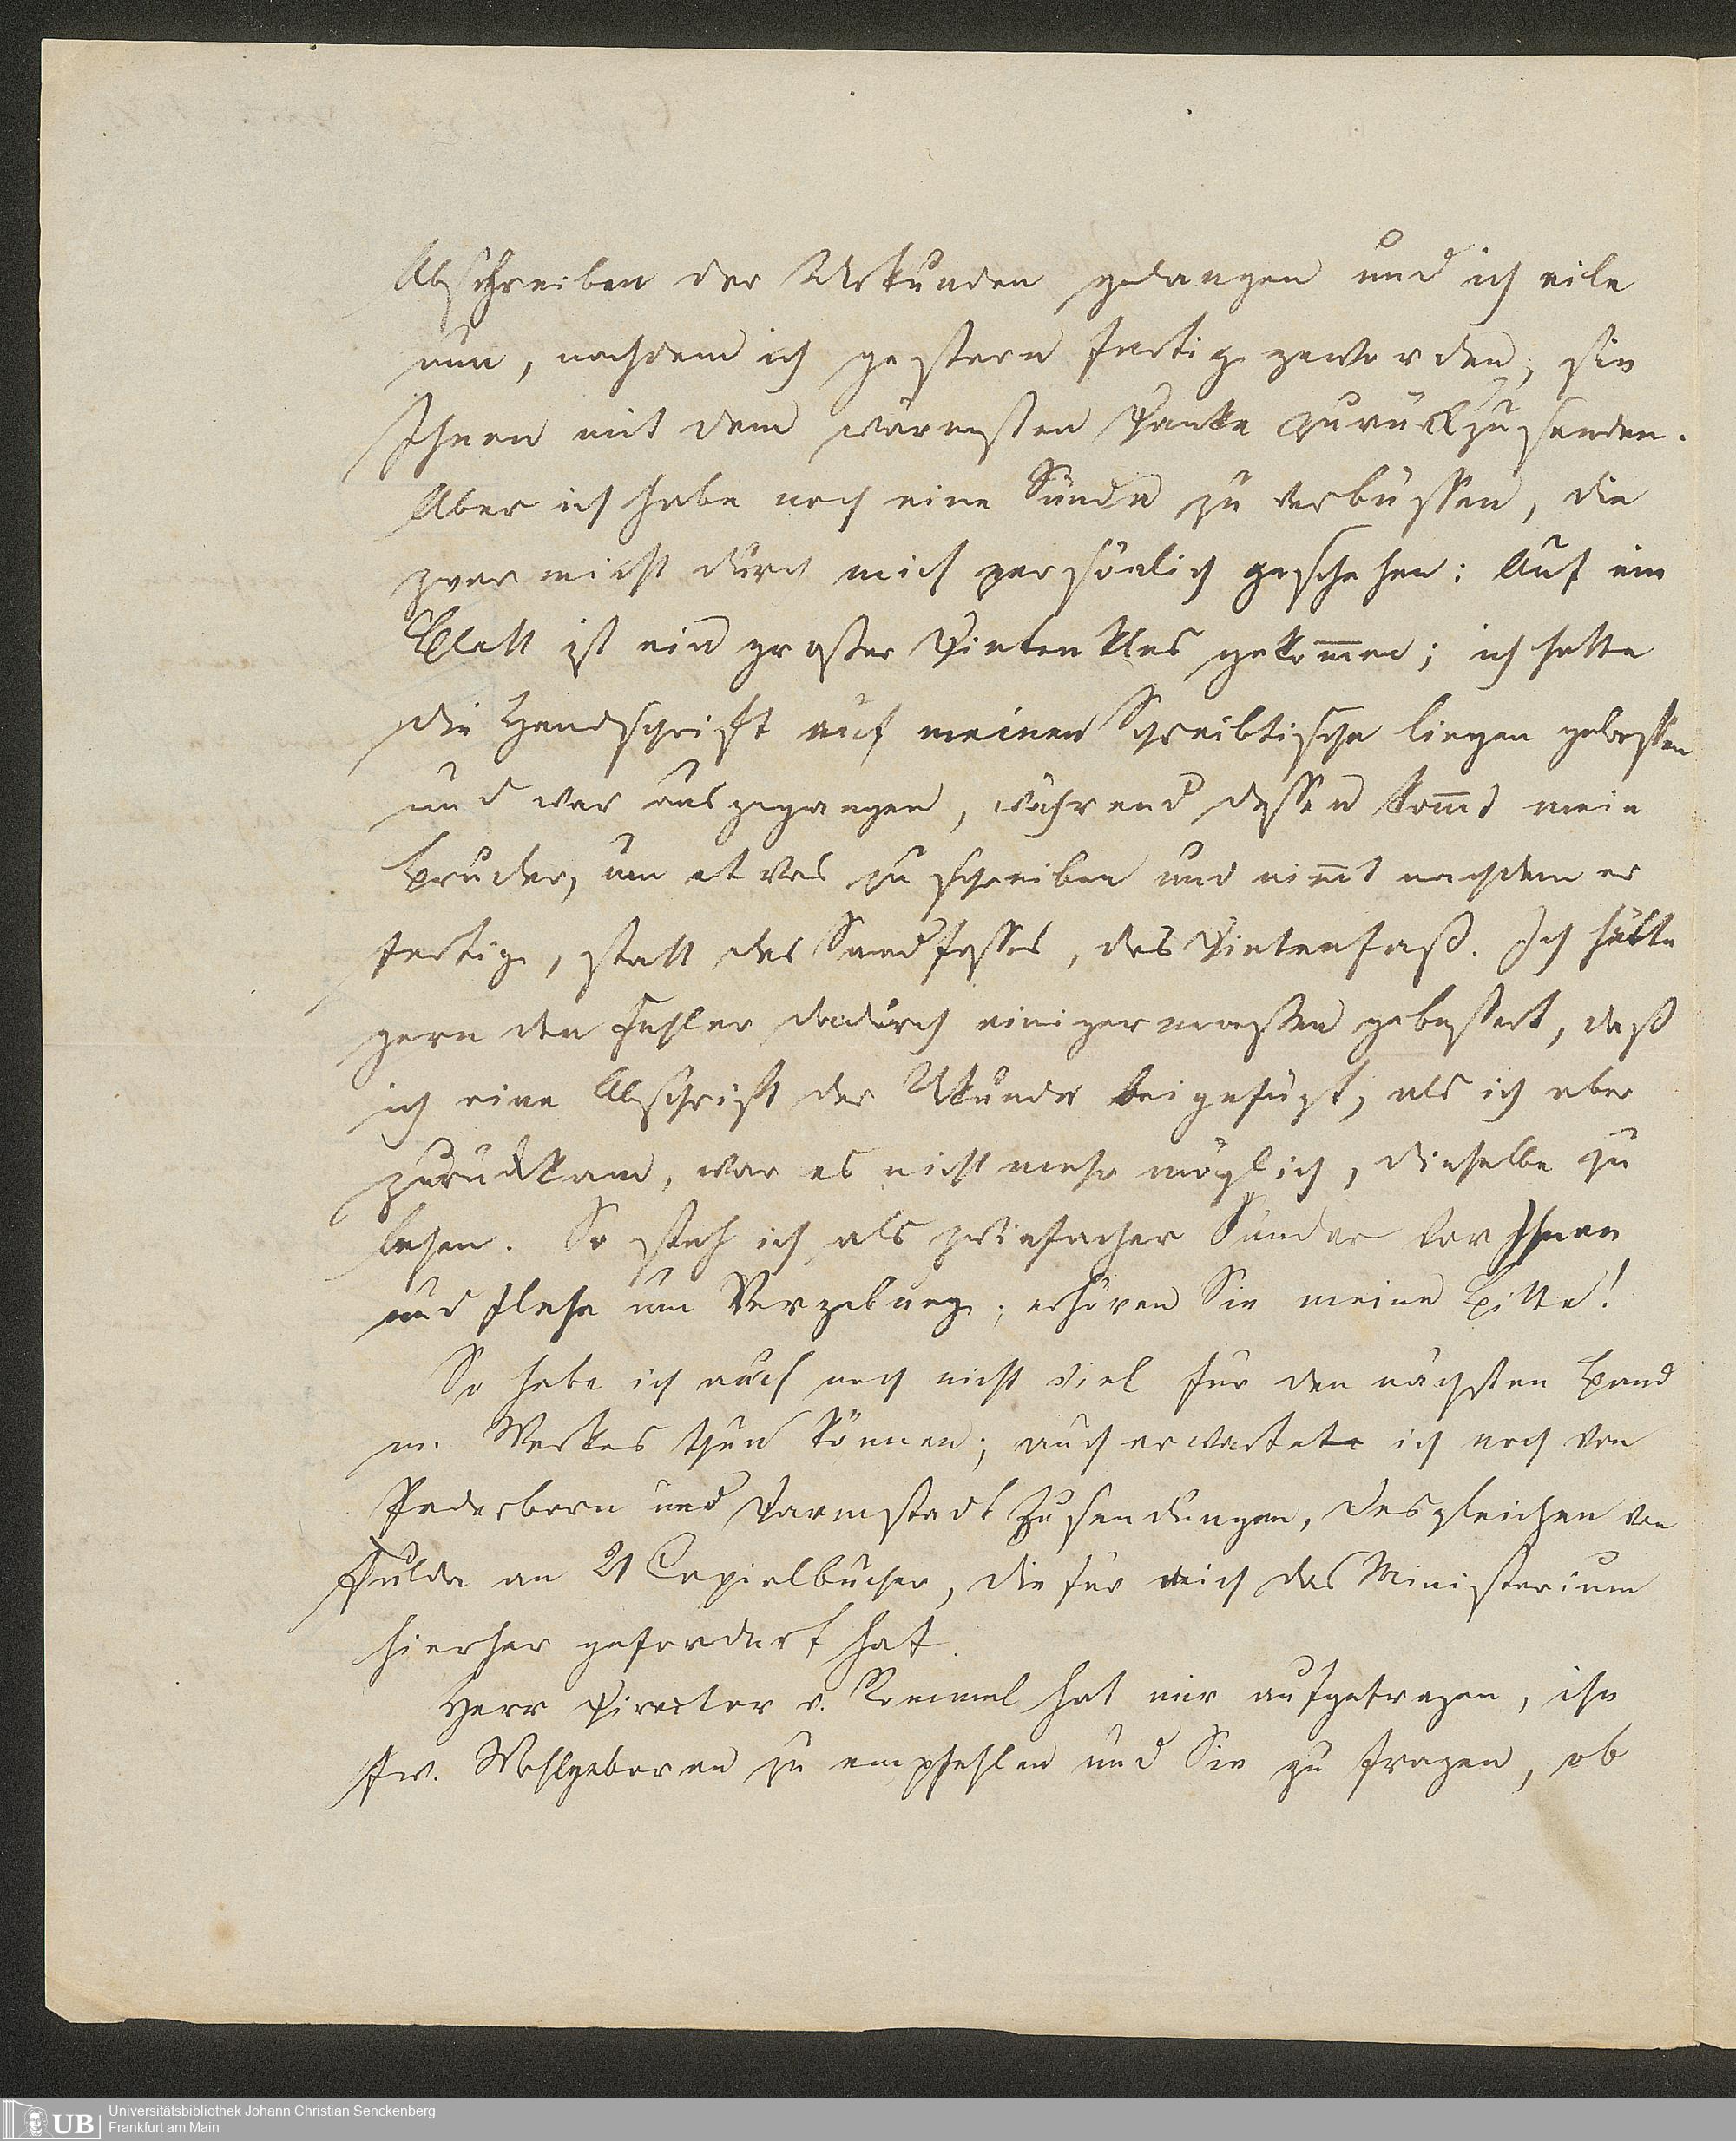 Abschreiben der Urkunden gelangen und ich eile
nun, nachdem ich gestern fertig geworden, sie
Ihnen mit dem wärmsten Danke zurückzusenden.
Aber ich habe noch eine Sünde zu verbüssen, die
zwar nicht durch mich persönlich geschehen: Auf ein
Blatt ist ein grosser Dintenklex gekom̅en; ich hatte
die Handschrift auf meinen Schreibtische liegen gelassen
und war ausgegangen, während dessen kom̅t mein
Bruder, um etwas zu schreiben und nim̅t nachdem er
fertig, statt des Sandfasses, das Dintenfaß. Ich hätte
gern den Fehler dadurch einigermassen gebessert, daß
ich eine Abschrift der Urkunde beigefügt, als ich aber
zurückkam, war es nicht mehr möglich, dieselbe zu
lesen. So steh ich als zwiefacher Sünder vor Ihnen
und flehe um Vergebung; erhören Sie meine Bitte!
So habe ich auch noch nicht viel für den nächsten Band
m. Werkes thun können; auch erwarte ich noch von
Paderborn und Darmstadt Zusendungen, desgleichen von
Fulda an 21 Copialbücher, die für mich das Ministerium
hierher gefordert hat.
Herr Director v. Rommel hat mir aufgetragen, ihn
Ew. Wohlgeboren zu empfehlen und Sie zu fragen, ob
UB
Universitätsbibliothek Johann Christian Senckenberg
Frankfurt am Main